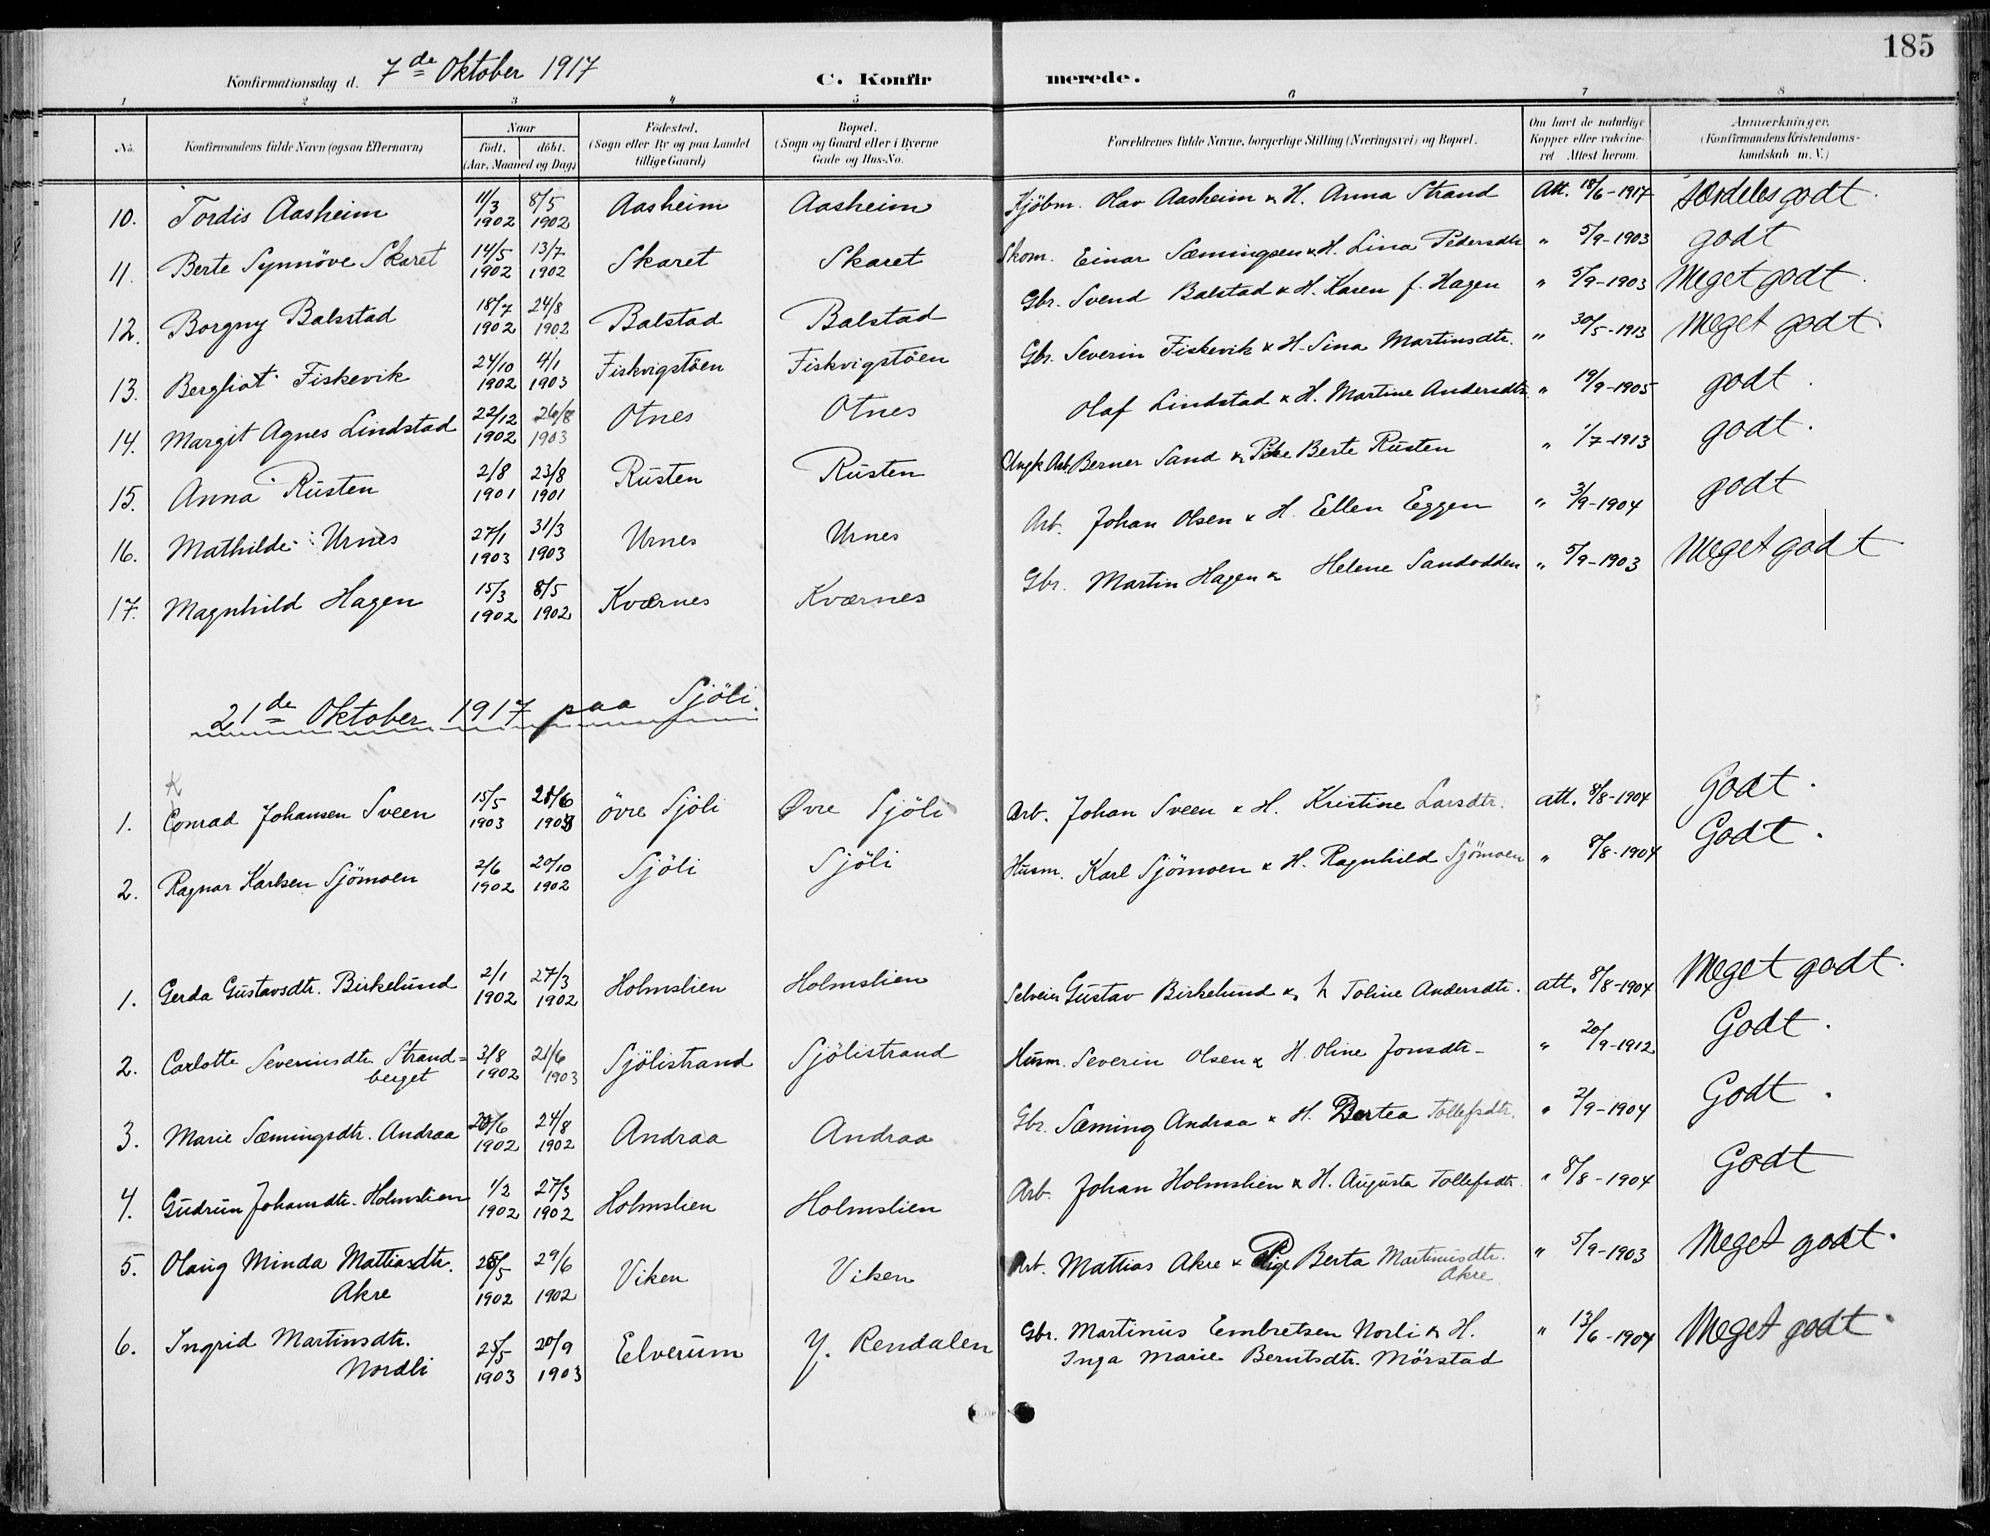 185
Konfirmationsdag d. 7de Oktober 1917 C. Konfirmerede.
1 2 3 4 5 6 7 8
No. Konfirmandens fulde Navn (ogsaa Efternavn) Naar født. døbt. (Aar, Maaned og Dag) Fødested. (Sogn eller By og paa Landet tillige Gaard) Bopæl. (Sogn og Gaard eller i Byerne Gade og Hus-No. Forældrenes fulde Navne, borgerlige Stilling (Næringsvei) og Bopæl. Om havt de naturlige Kopper eller vaccineret. Attest herom. Anmærkninger. (Konfirmandens Kristendomskundskab m. V.)
10. Tordis Aasheim 11/3 1902 8/5 1902 Aasheim Aasheim Kjöbm. Olav Aasheim & H. Anna Strand Att. 18/6-1917 særdeles godt.
11. Berte Synnöve Skaret 14/5 1902 13/7 1902 Skaret Skaret Skom. Einar Sæmingsen & H. Lina Pedersdtr " 5/9-1903 godt
12. Borgny Balstad 18/7 1902 24/8 1902 Balstad Balstad Gbr. Svend Balstad & H. Karen f. Hagen " 5/9-1903 Meget godt.
13. Bergliot Fiskevik 24/10 1902 4/1 1903 Fiskvigstöen Fiskvigstöen Gbr. Severin Fiskevik & H. Sina Martinsdtr. " 30/5-1913 Meget godt.
14. Margit Agnes Lindstad 22/12 1902 26/8 1903 Otnes Otnes Olaf Lindstad & H. Martine Andersdtr " 19/9-1905 godt.
15. Anna Rusten 2/8 1901 23/8 1901 Rusten Rusten Ungk. Arb. Berner Sand & Pike Berte Rusten " 1/7-1913 godt.
16. Mathilde Urnes 27/1 1903 31/3 1903 Urnes Urnes Arb. Johan Olsen & H. Ellen Eggen " 3/9-1904 godt
17. Magnhild Hagen 15/3 1902 8/5 1902 Kværnes Kværnes Gbr. Martin Hagen & Helene Sandodden " 5/9-1903 Meget godt
21de Oktober 1917 paa Sjöli.
K
1. Conrad Johansen Sveen 15/5 1903 21/6 1903 övre Sjöli Øvre Sjöli Arb. Johan Sveen & H. Kristine Larsdtr. att. 8/8-1904 Godt.
2. Ragnar Karlsen Sjömoen 2/6 1902 20/10 1902 Sjöli Sjöli Husm. Karl Sjömoen & H. Ragnhild Sjömoen " 8/8-1904 Godt.
1. Gerda Gustavsdtr. Birkelund 2/1 1902 27/3 1902 Holmslien Holmslien Selveier Gustav Birkelund & h Toline Andersdtr. att. 8/8-1904 Meget godt.
2. Carlotte Severinsdtr. Strand= 3/8 1902 21/6 1903 Sjölistrand Sjölistrand Husm. Severin Olsen & H. Oline Jonsdtr- " 20/9-1912 Godt.
berget
3. Marie Sæmingsdtr. Andraa 20/6 1902 24/8 1902 Andraa Andraa Gbr. Sæming Andraa & H. Bertea Tollefsdtr. " 2/9-1904 Godt.
4. Gudrun Johansdtr. Holmslien 1/2 1902 27/3 1902 Holmslien Holmslien Arb. Johan Holmslien & H. Augusta Tollefsdtr. " 8/8-1904 Godt
5. Olaug Minda Mattiasdtr. 28/5 1902 29/6 1902 Viken Viken Art. Mattias Akre & Pige Berta Martinusdtr. " 5/9-1903 Meget godt.
Akre Akre
6. Ingrid Martinsdtr. 25/5 1903 20/9 1903 Elverum Y. Rendalen Gbr. Martinus Embretsen Norli & H. " 13/6-1904 Meget godt.
Nordli Inga Marie Berntsdtr. Mörstad